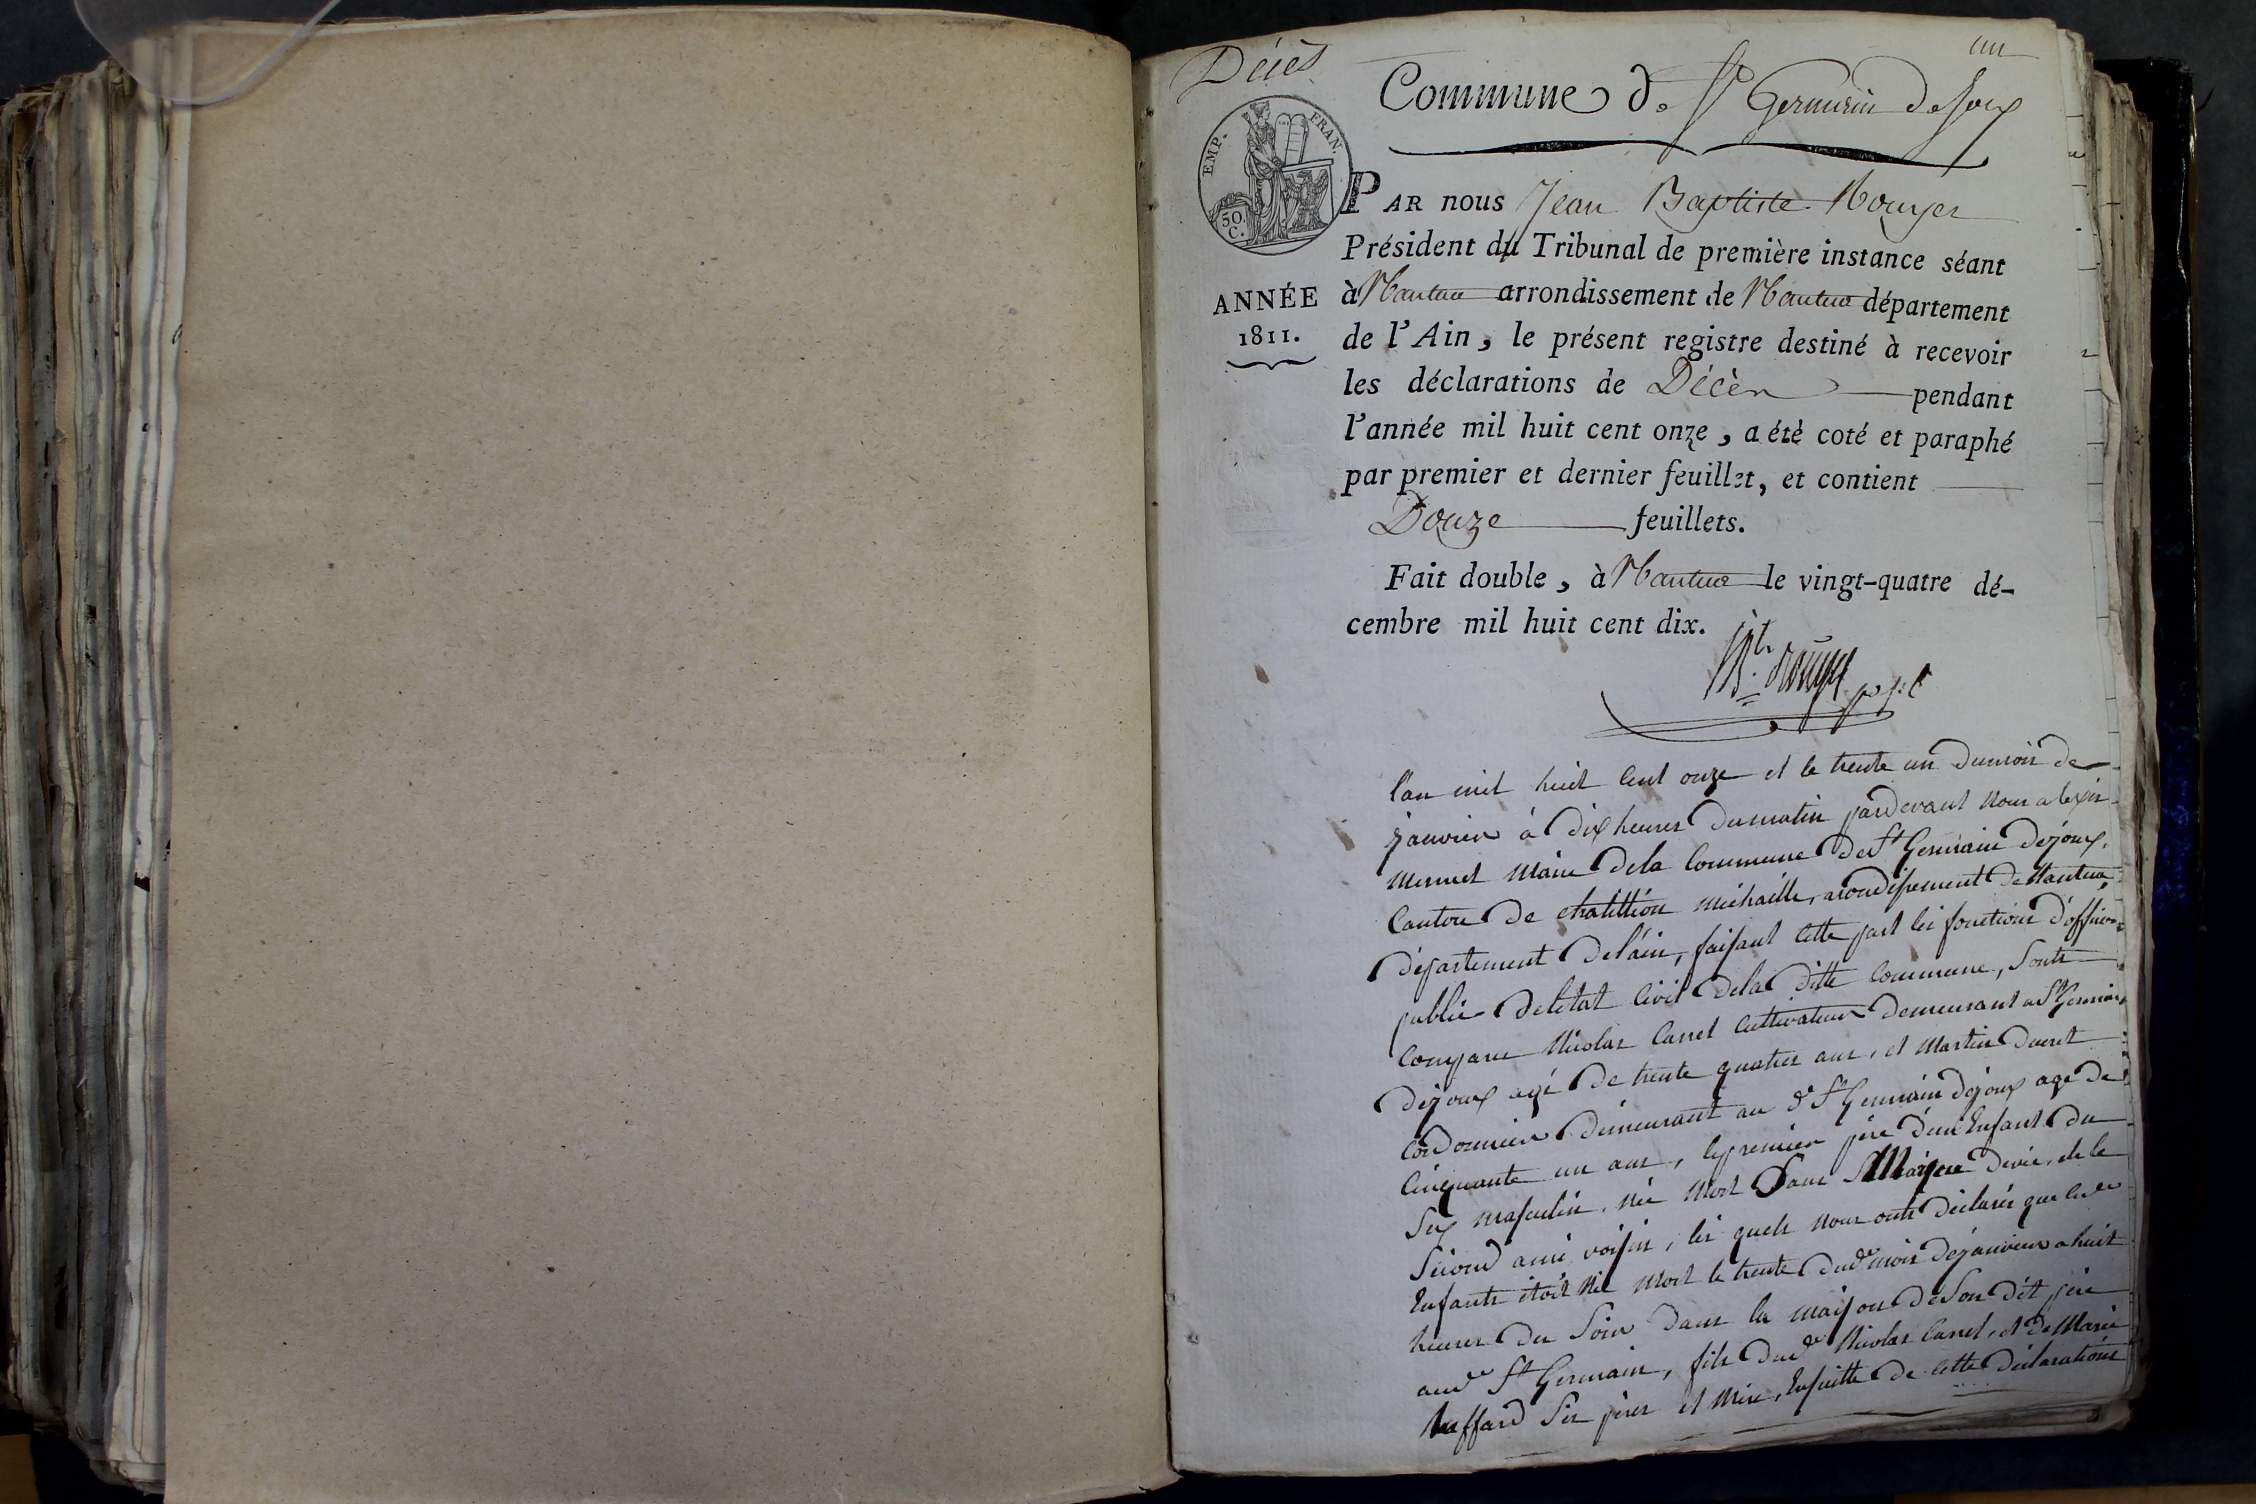 Décès
un
Commune de St Germain de Joux
EMP. FRAN.
50 C.
ANNÉE
1811.
PAR nous Jean Baptiste Rouyer
Président du Tribunal de première instance séant
à Nantua arrondissement de Nantua département
de l'Ain, le présent registre destiné à recevoir
les déclarations de Décès pendant
l'année mil huit cent onze, a été coté et paraphé
par premier et dernier feuillet, et contient
Douze feuillets.
Fait double, à Nantua le vingt-quatre dé-
cembre mil huit cent dix.
l'an mil huit cent onze et le trente un dumois de
janvier à dix heures dumatin pardevant nous alexis
Mermet Maire dela Commune de St Germain dejoux,
Canton de chatillion michaille, arondissement de Nantua,
département delain, faisant cette part les fonctions d'officier
public deletat Civil dela ditte Commune, Sonts
Comparu Nicolas Carrel Cultivateur demeurant a St Germain
dejoux agé de trente quatres ans, et Martin ducret
Cordonnier demeurant au dt St Germain dejoux age de
Cinquante un ans, le premier père d'un Enfant du
Sex masculin, né Mort Sans Marque devie, et le
Second ami voisin, les quels nous onts déclarés que led
Enfants étoit Né Mort le trente dud mois dejanvier a huit
heures du Soir dans la maison deSon dit père
aud St Germain, fils dud Nicolas Carrel, et de Marie
buffard Ses pères et Mère, Ensuitte de cette déclarations